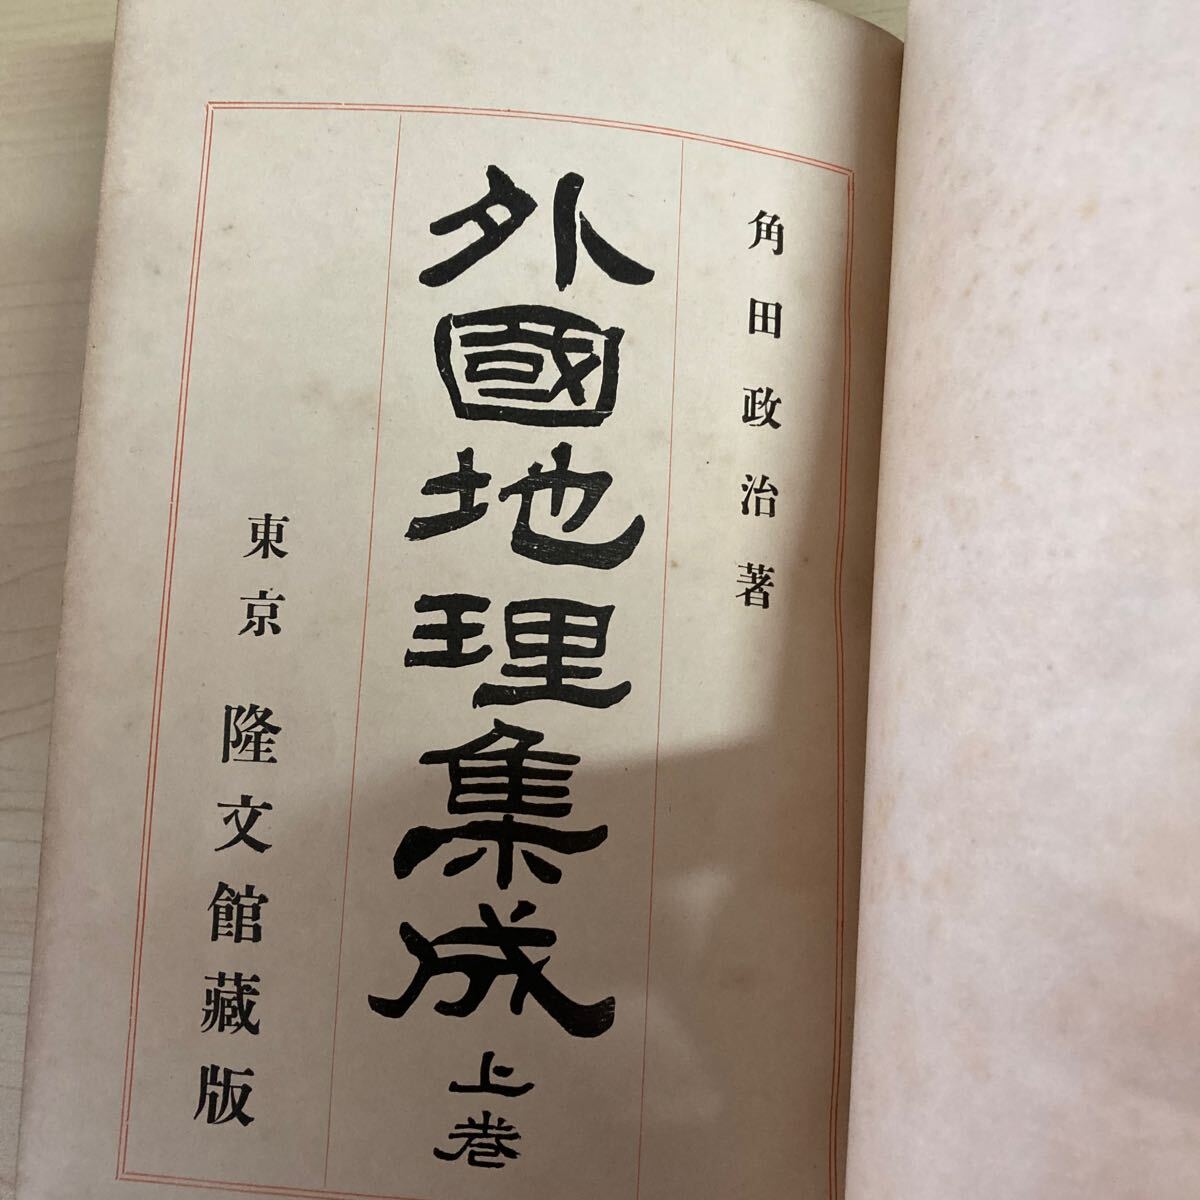 角田政治著
外國地理集成 上卷
東京 隆文館藏版